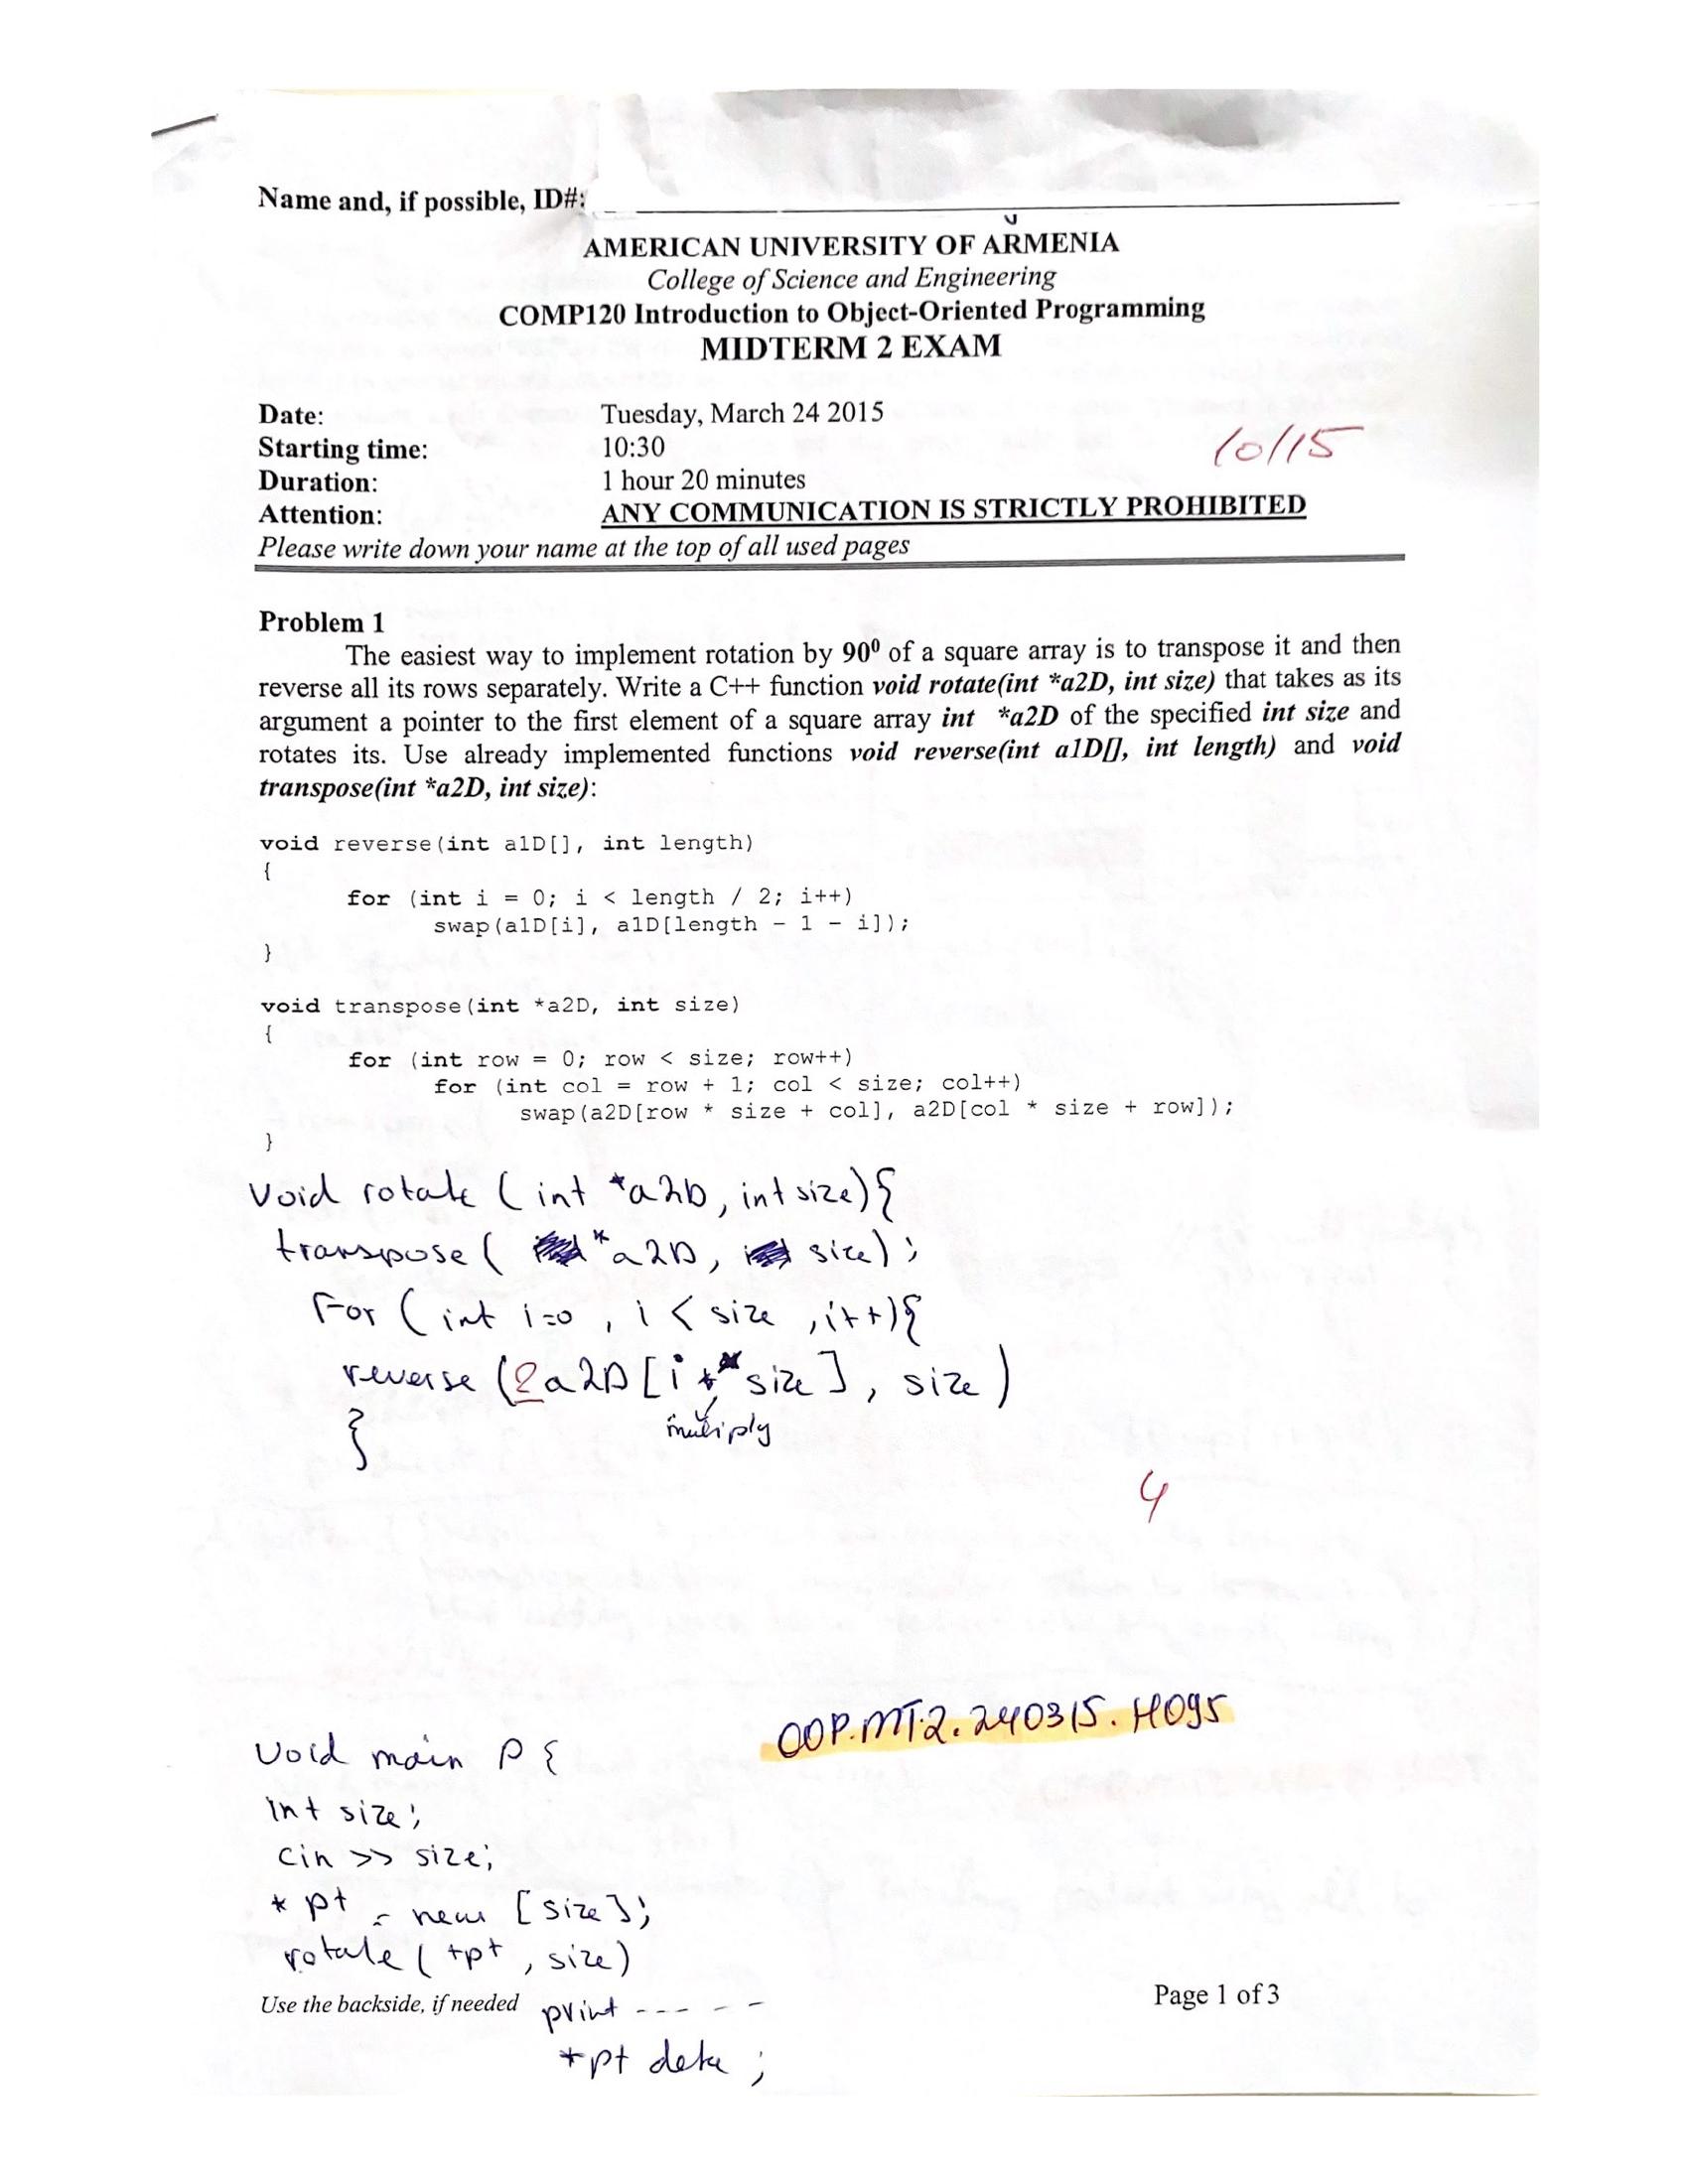 Name and, if possible, ID#:
AMERICAN UNIVERSITY OF ARMENIA
College of Science and Engineering
COMP120 Introduction to Object-Oriented Programming
MIDTERM 2 EXAM
Date: Tuesday, March 24 2015
10/15
Starting time: 10:30
Duration: 1 hour 20 minutes
Attention: ANY COMMUNICATION IS STRICTLY PROHIBITED
Please write down your name at the top of all used pages
Problem 1
The easiest way to implement rotation by 90⁰ of a square array is to transpose it and then
reverse all its rows separately. Write a C++ function void rotate(int *a2D, int size) that takes as its
argument a pointer to the first element of a square array int *a2D of the specified int size and
rotates its. Use already implemented functions void reverse(int a1D[], int length) and void
transpose(int *a2D, int size):
void reverse(int a1D[], int length)
{
for (int i = 0; i < length / 2; i++)
swap(a1D[i], a1D[length - 1 - i]);
}
void transpose(int *a2D, int size)
{
for (int row = 0; row < size; row++)
for (int col = row + 1; col < size; col++)
swap(a2D[row * size + col], a2D[col * size + row]);
}
void rotate (int *a2D, int size){
transpose( *a2D, size);
For (int i=0 , i < size , i++){
reverse (a2D[i * size], size)
multiply
}
4
OOP.MT2.240315.H095
void main {
int size;
cin >> size;
* pt = new [size];
rotate( *pt , size)
Use the backside, if needed
Page 1 of 3
print - - - - -
*pt ;